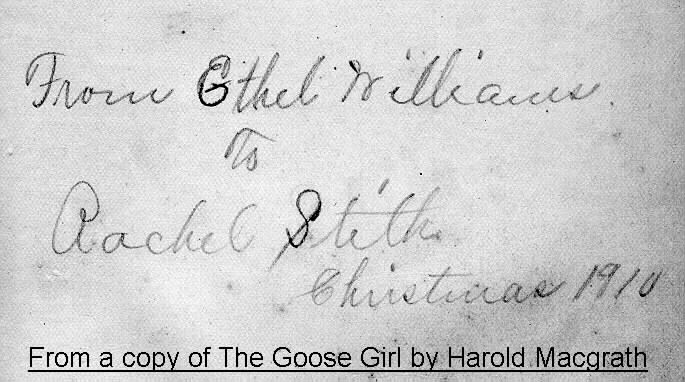 From Ethel Williams.
To
Rachel Stith.
Christmas 1910
From a copy of The Goose Girl by Harold Macgrath